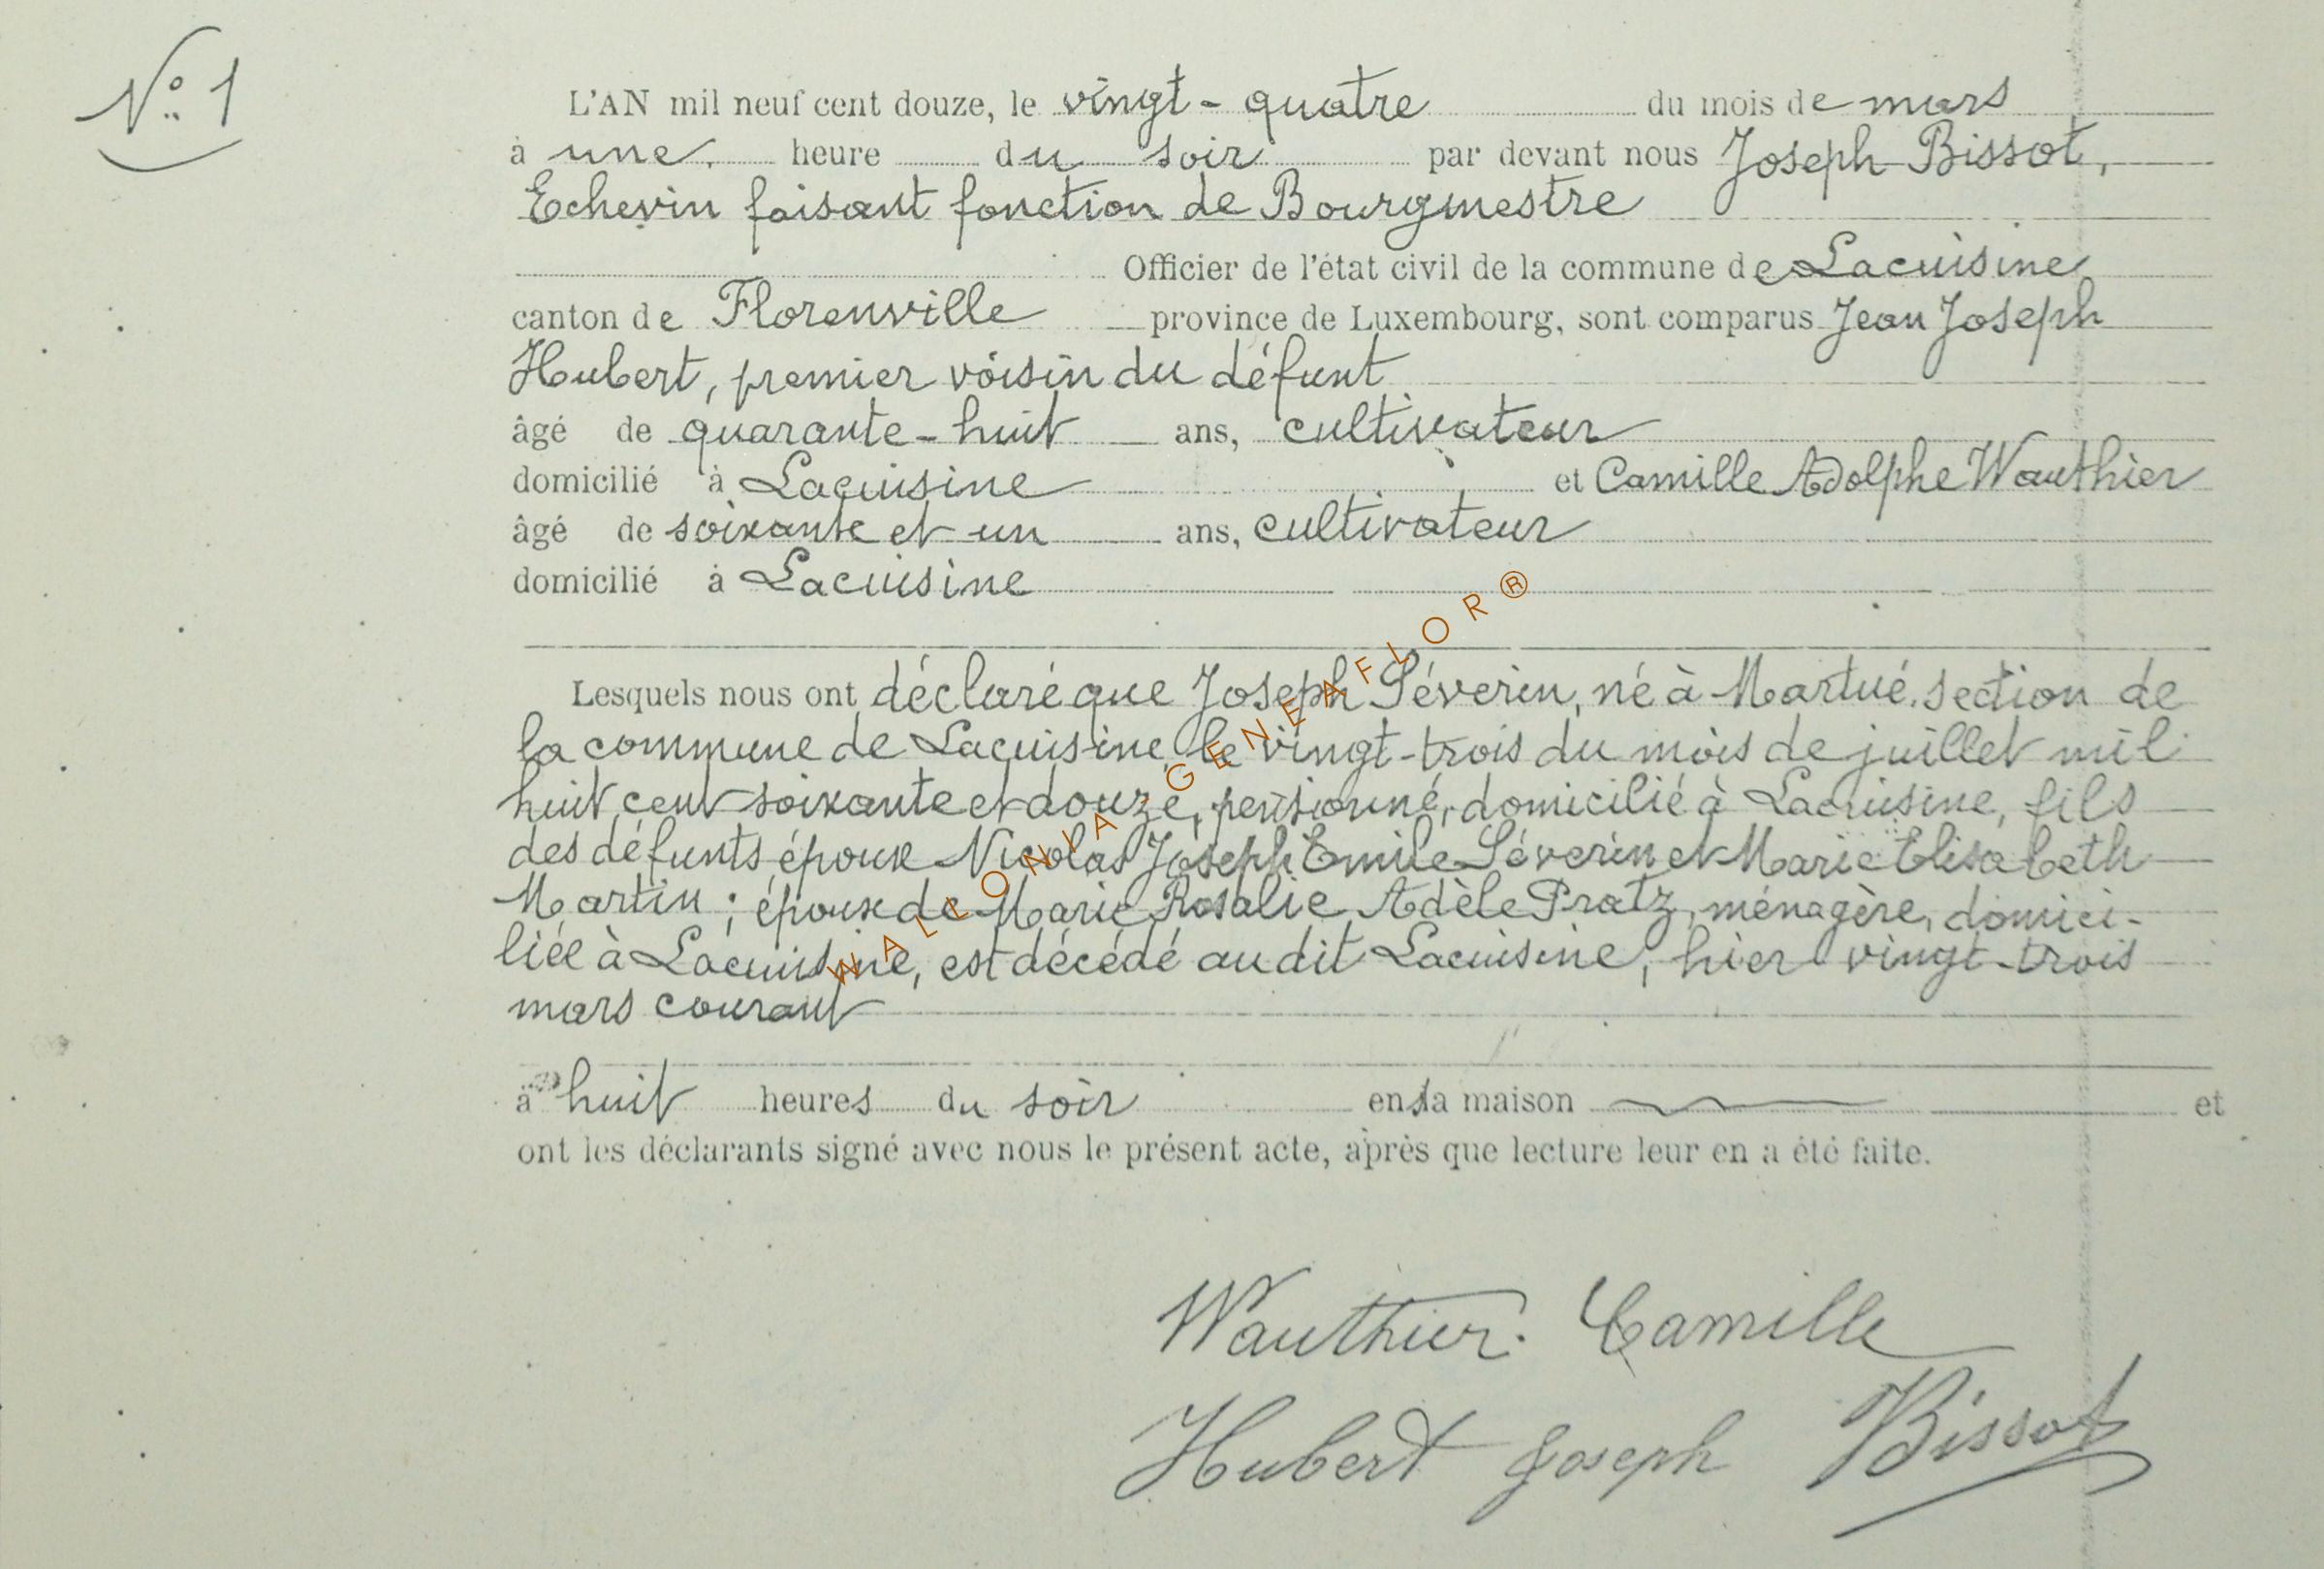 N° 1
L'AN mil neuf cent douze, le vingt-quatre du mois de mars
à une heure du soir par devant nous Joseph Bissot,
Echevin faisant fonction de Bourgmestre
Officier de l'état civil de la commune de Lacuisine
canton de Florenville province de Luxembourg, sont comparus Jean Joseph
Hubert, premier voisin du défunt
âgé de quarante-huit ans, cultivateur
domicilié à Lacuisine et Camille Adolphe Wauthier
âgé de soixante et un ans, cultivateur
domicilié à Lacuisine
Lesquels nous ont déclaré que Joseph Séverin, né à Martué, section de
la commune de Lacuisine le vingt-trois du mois de juillet mil
huit cent soixante et douze, pensionné, domicilié à Lacuisine, fils
des défunts époux Nicolas Joseph Emile Séverin et Marie Elisabeth
Martin ; époux de Marie Rosalie Adèle Pratz, ménagère, domici-
liée à Lacuisine, est décédé au dit Lacuisine, hier vingt-trois
mars courant
à huit heures du soir en sa maison et
ont les déclarants signé avec nous le présent acte, après que lecture leur en a été faite.
Wauthier. Camille
Hubert Joseph Bissot
WALLONIA-GENEAFLOR®